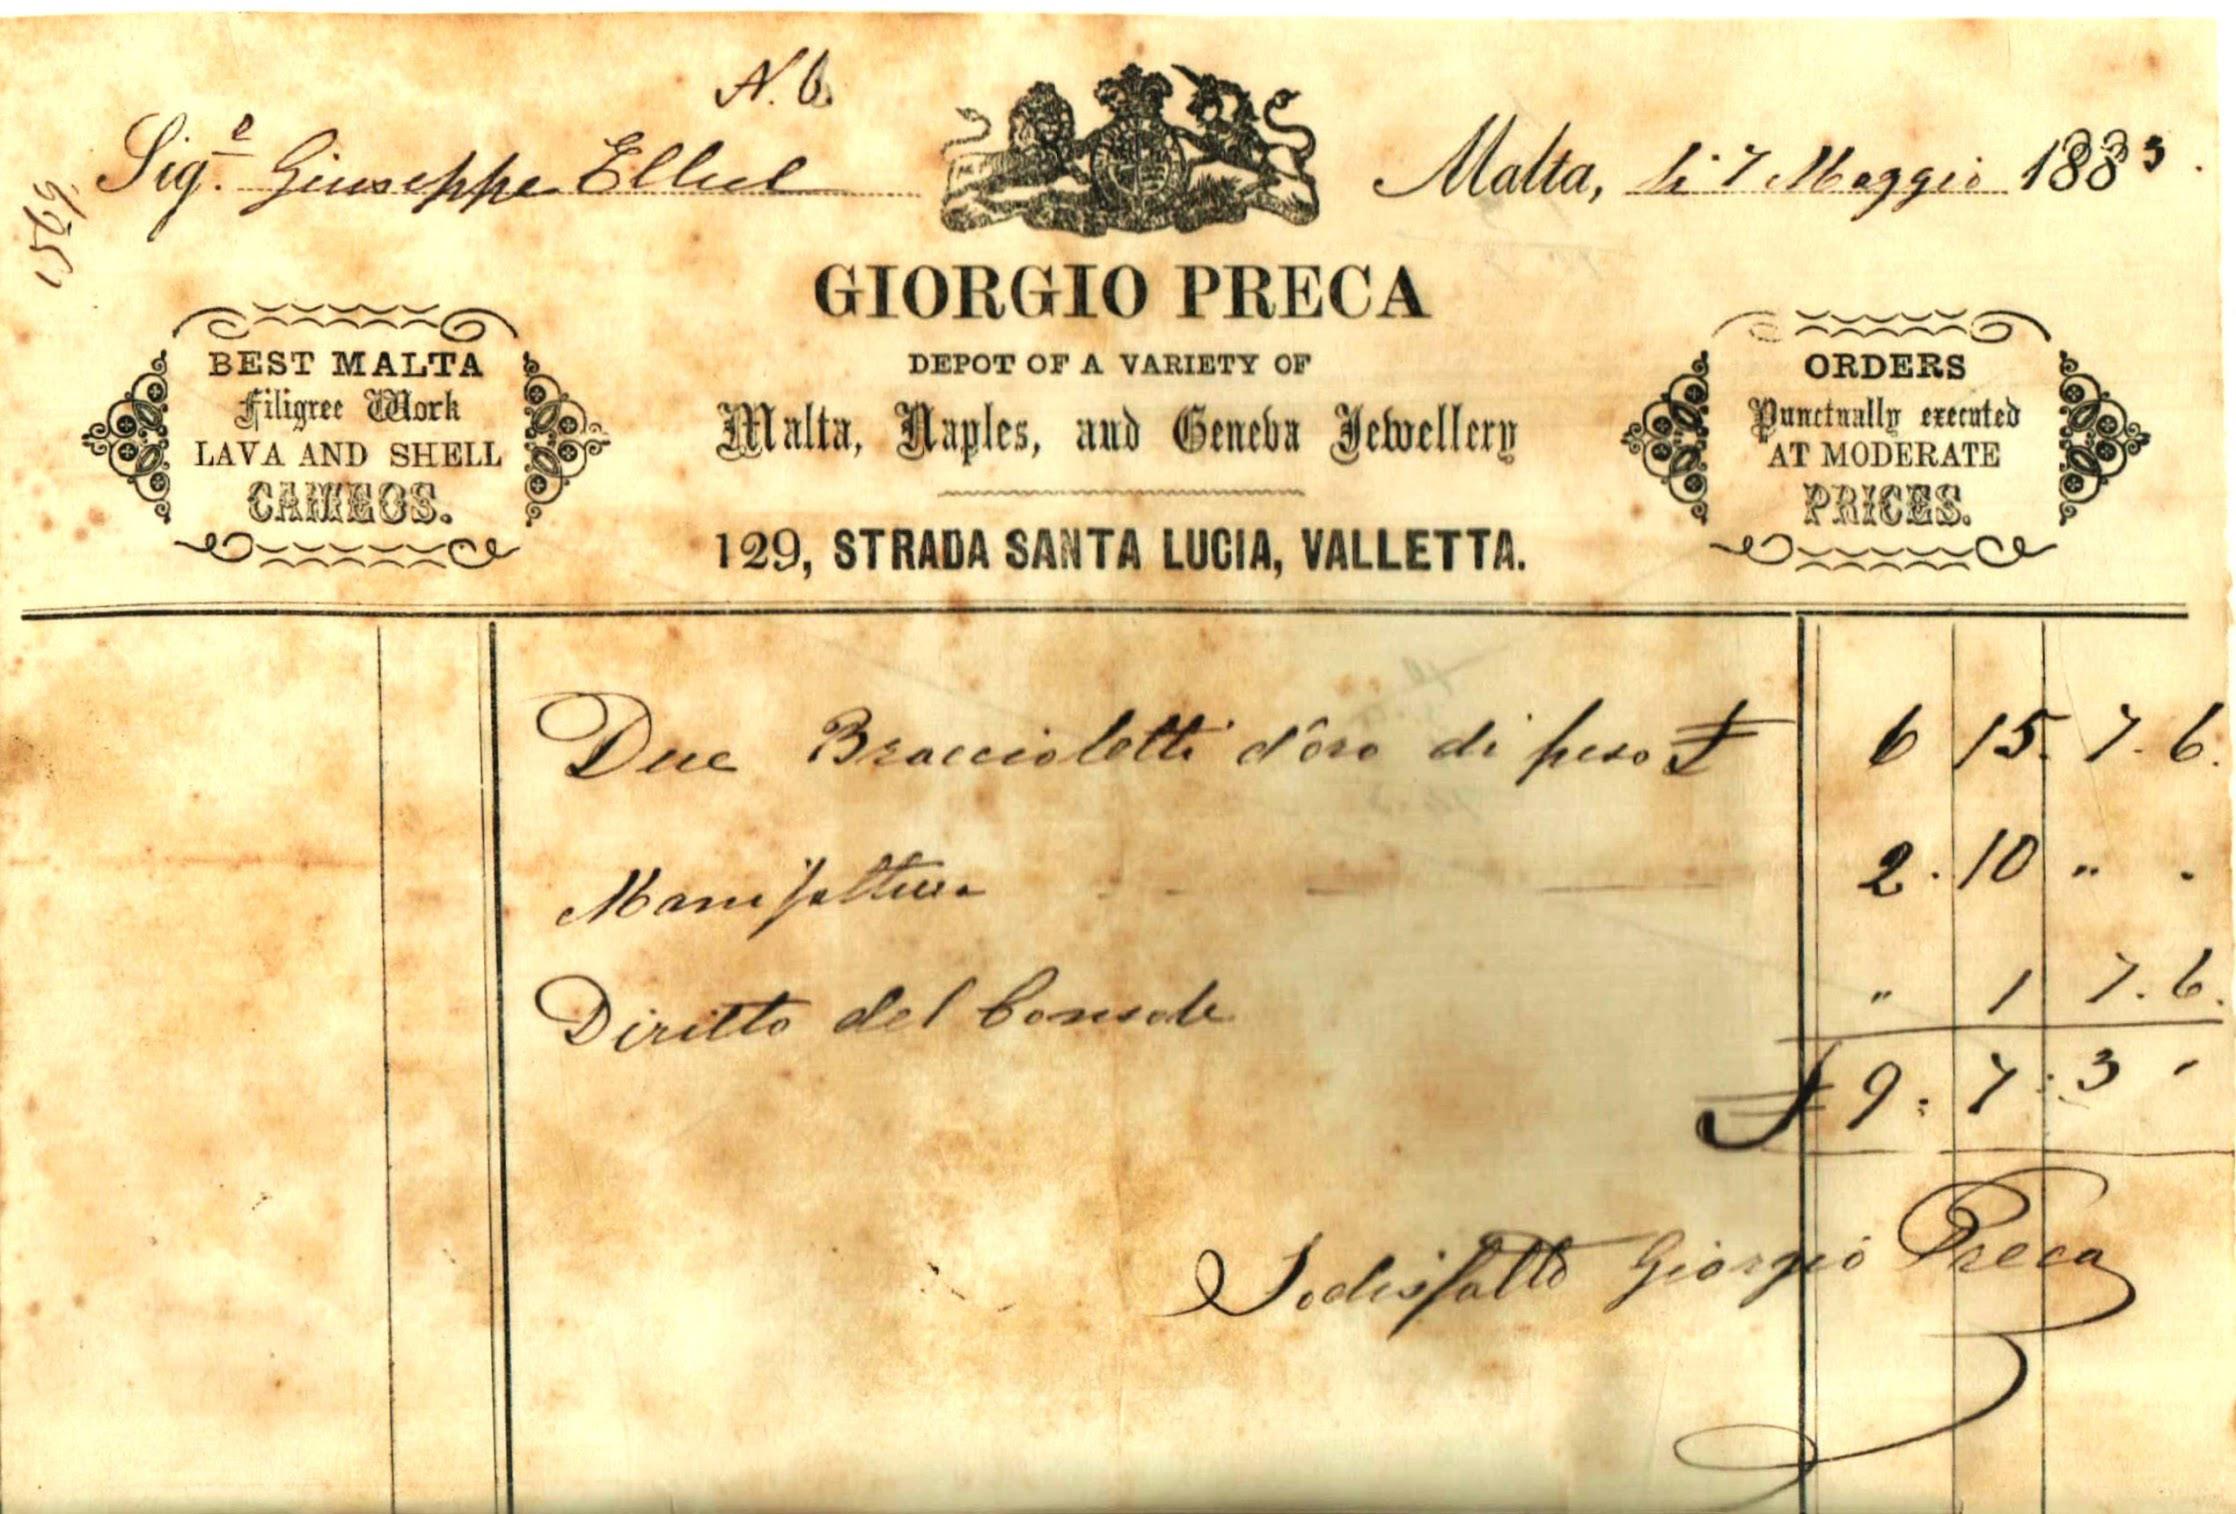 N. 6.
Sig.e Giuseppe Ellul
Malta, li 7 Maggio 1883.
GIORGIO PRECA
DEPOT OF A VARIETY OF
Malta, Naples, and Geneva Jewellery
129, STRADA SANTA LUCIA, VALLETTA.
BEST MALTA
Filigree Work
LAVA AND SHELL
CAMEOS.
ORDERS
Punctually executed
AT MODERATE
PRICES.
Due Braccioletti d'oro di peso £ 6 15. 7. 6.
Manifattura 2. 10 " .
Diritto del Console " 1 7. 6.
£ 9: 7: 3
Sodisfatto Giorgio Preca